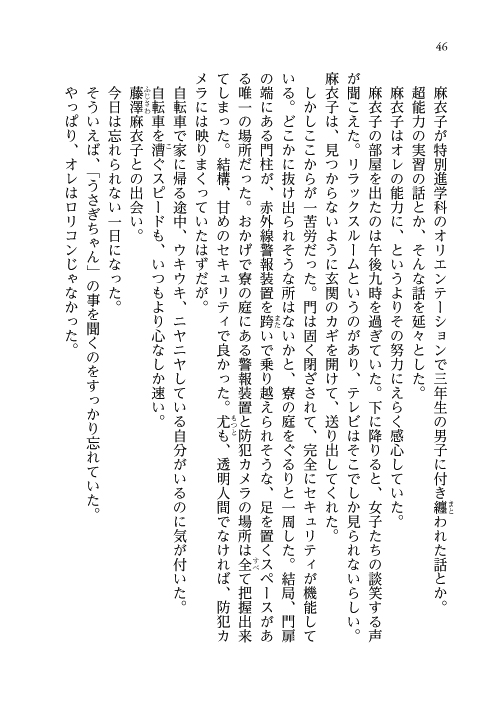 46
麻衣子が特別進学科のオリエンテーションで三年生の男子に付き纏われた話とか。
まと
超能力の実習の話とか、そんな話を延々とした。
麻衣子はオレの能力に、というよりその努力にえらく感心していた。
麻衣子の部屋を出たのは午後九時を過ぎていた。下に降りると、女子たちの談笑する声
が聞こえた。リラックスルームというのがあり、テレビはそこでしか見られないらしい。
麻衣子は、見つからないように玄関のカギを開けて、送り出してくれた。
しかしここからが一苦労だった。門は固く閉ざされて、完全にセキュリティが機能して
いる。どこかに抜け出られそうな所はないかと、寮の庭をぐるりと一周した。結局、門扉
の端にある門柱が、赤外線警報装置を跨いで乗り越えられそうな、足を置くスペースがあ
また
る唯一の場所だった。おかげで寮の庭にある警報装置と防犯カメラの場所は全て把握出来
すべ
てしまった。結構、甘めのセキュリティで良かった。尤も、透明人間でなければ、防犯カ
もっと
メラには映りまくっていたはずだが。
自転車で家に帰る途中、ウキウキ、ニヤニヤしている自分がいるのに気が付いた。
自転車を漕ぐスピードも、いつもより心なしか速い。
こ
藤澤麻衣子との出会い。
ふじさわ
今日は忘れられない一日になった。
そういえば、「うさぎちゃん」の事を聞くのをすっかり忘れていた。
やっぱり、オレはロリコンじゃなかった。